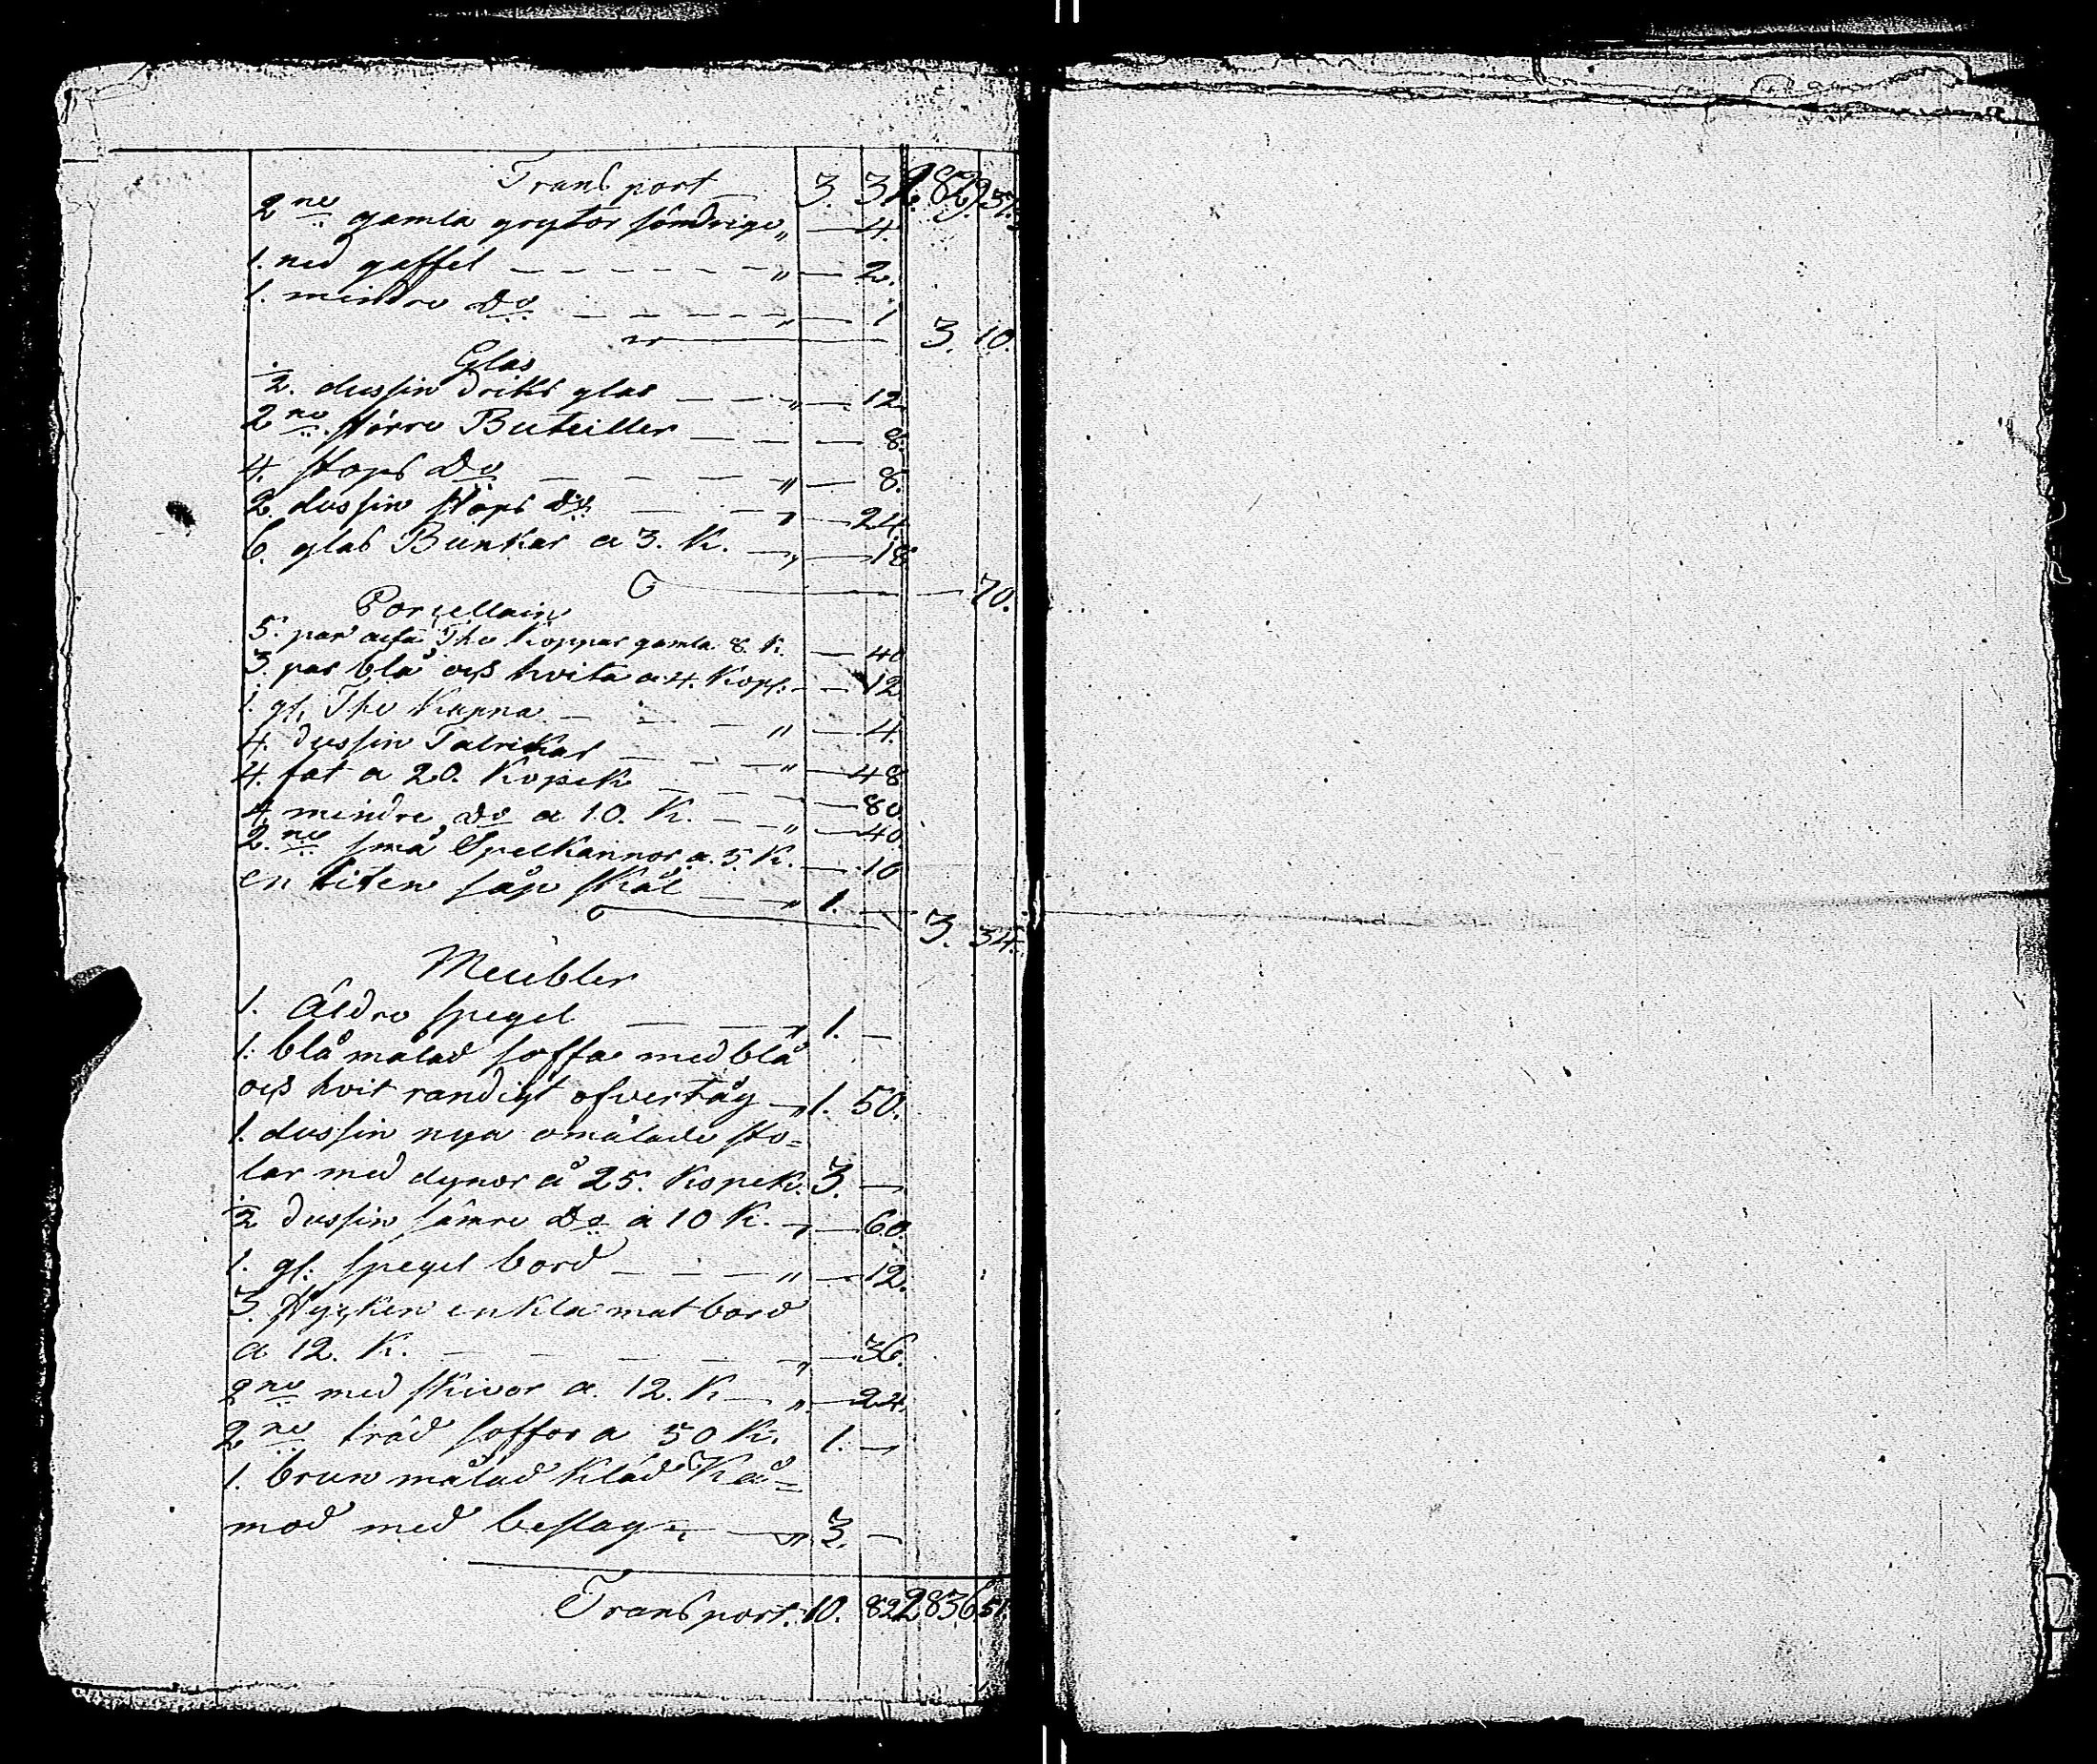 Transport 3. 3. 2829. 37.
2ne gamla grytor söndrige „ — 4.
1. ned gaffel — — — „ — 2.
1. mindre do — — — „ — 1
3. 10.
Glas
½. dussin driks glas — — „ — 12.
2ne större Buteiller — — — 8.
4. stops do — — — „ — 8.
2. dussin stops do — — „ — 24.
6. glas Bunkar a 3. K. — „ — 18.
— 70.
Porcellain
5. par Thee Koppar gamla 8. K. — 40
3. par blå och hvita a 4. Kop: — — 12.
1. gl. The Kanna — — — „ — 4.
4. dussin Talrikar — — — „ — 48.
4. fat a 20. Kopek — — — — 80.
4. mindre do a 10. K. — — „ — 40.
2.ne små Spelkannor a. 5. K. — 10
en liten såp skål — — „ 1. —
3. 34.
Meubler
1. Äldre spegel — — „ 1. —
1. blå målad soffa med blå
och hvit randigt öfvertåg — „ 1. 50.
1. dussin nya omålade sto=
lar med dynor å 25. Kopek. 3. —
½ dussin sämre do a 10 K. — „ — 60.
1. gl: spegel bord — — — „ — 12.
3. stycken enkla mat bord
a 12. K. — — — — „ — 36.
2ne med skivor a. 12. K — „ — 24.
2ne träd soffor a 50 K. 1. —
1. brun målad Kläd Kå=
mod med beslag — — „ 3. —
Transport. 10. 82 2836 51.